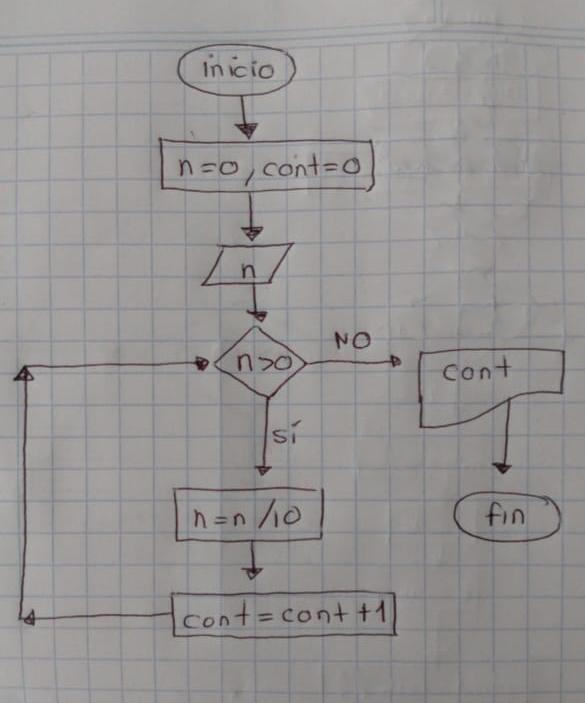 inicio
n=0, cont=0
n
n>0
NO
cont
sí
n=n/10
fin
cont=cont+1